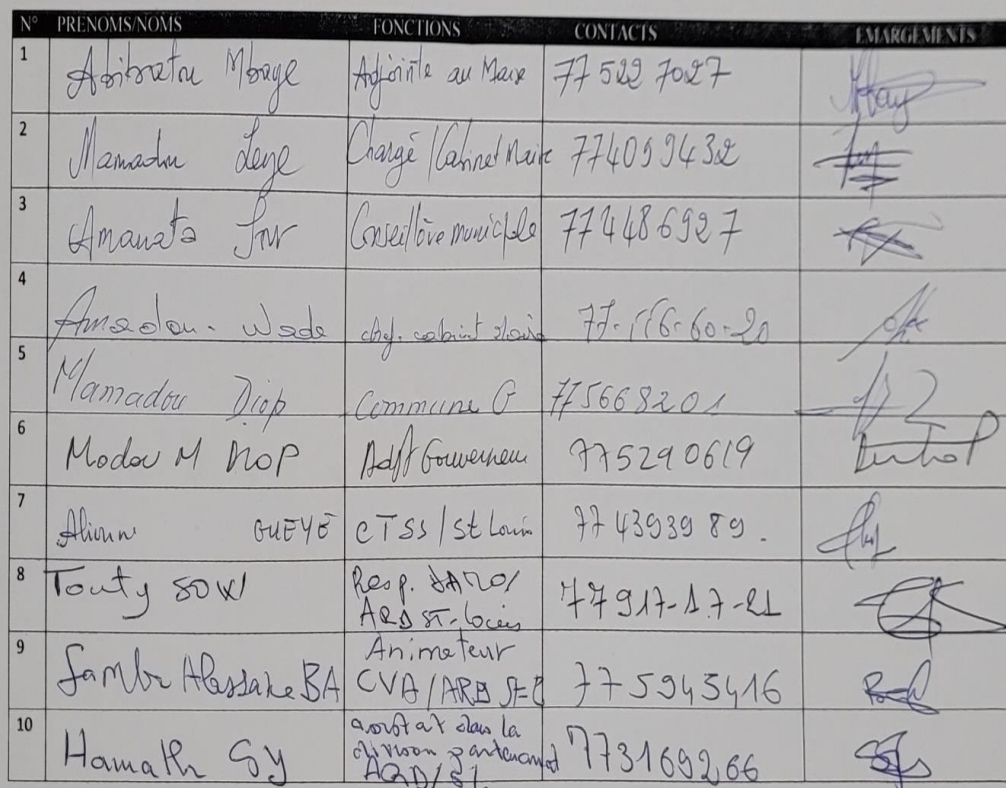 N° PRENOMS/NOMS FONCTIONS CONTACTS EMARGEMENTS
1 Mbaye Adjointe au Maire 77 522 7027
2 Mamadou Leye Chargé/Cabinet Maire 774099432
3 Aminata Conseillère municipale 774486927
4 Amadou. Wade chef. cabinet Maire 77-116-60-20
5 Mamadou Diop Commune G 775668201
6 Modou M DIOP Adjt Gouverneur 775290619
7 Alioune GUEYE CTSS/St Louis 77 43939 89.
8 Touty SOW Resp.
ARD ST-Louis 77917-17-21
9 Samba Alassane BA Animateur
CVA/ARD 775945416
10 Hamath Sy dans la
division partenariat 773169266
ARD/SL